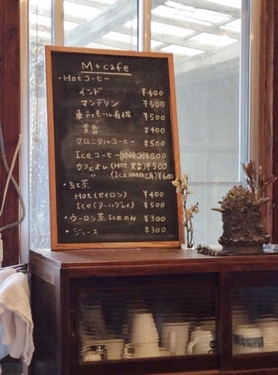 M+cafe
・Hotコーヒー
インド ¥400
マンデリン ¥500
東ティモール有機 ¥500
¥400
クロニクルコーヒー ¥500
Iceコーヒー ¥500
カフェオレ (Hot ) ¥500
〃 (Ice ) ¥600
・紅茶
Hot (セイロン) ¥400
Ice (アールグレイ) ¥500
・ウーロン茶 Iceのみ ¥300
・ジュース ¥300